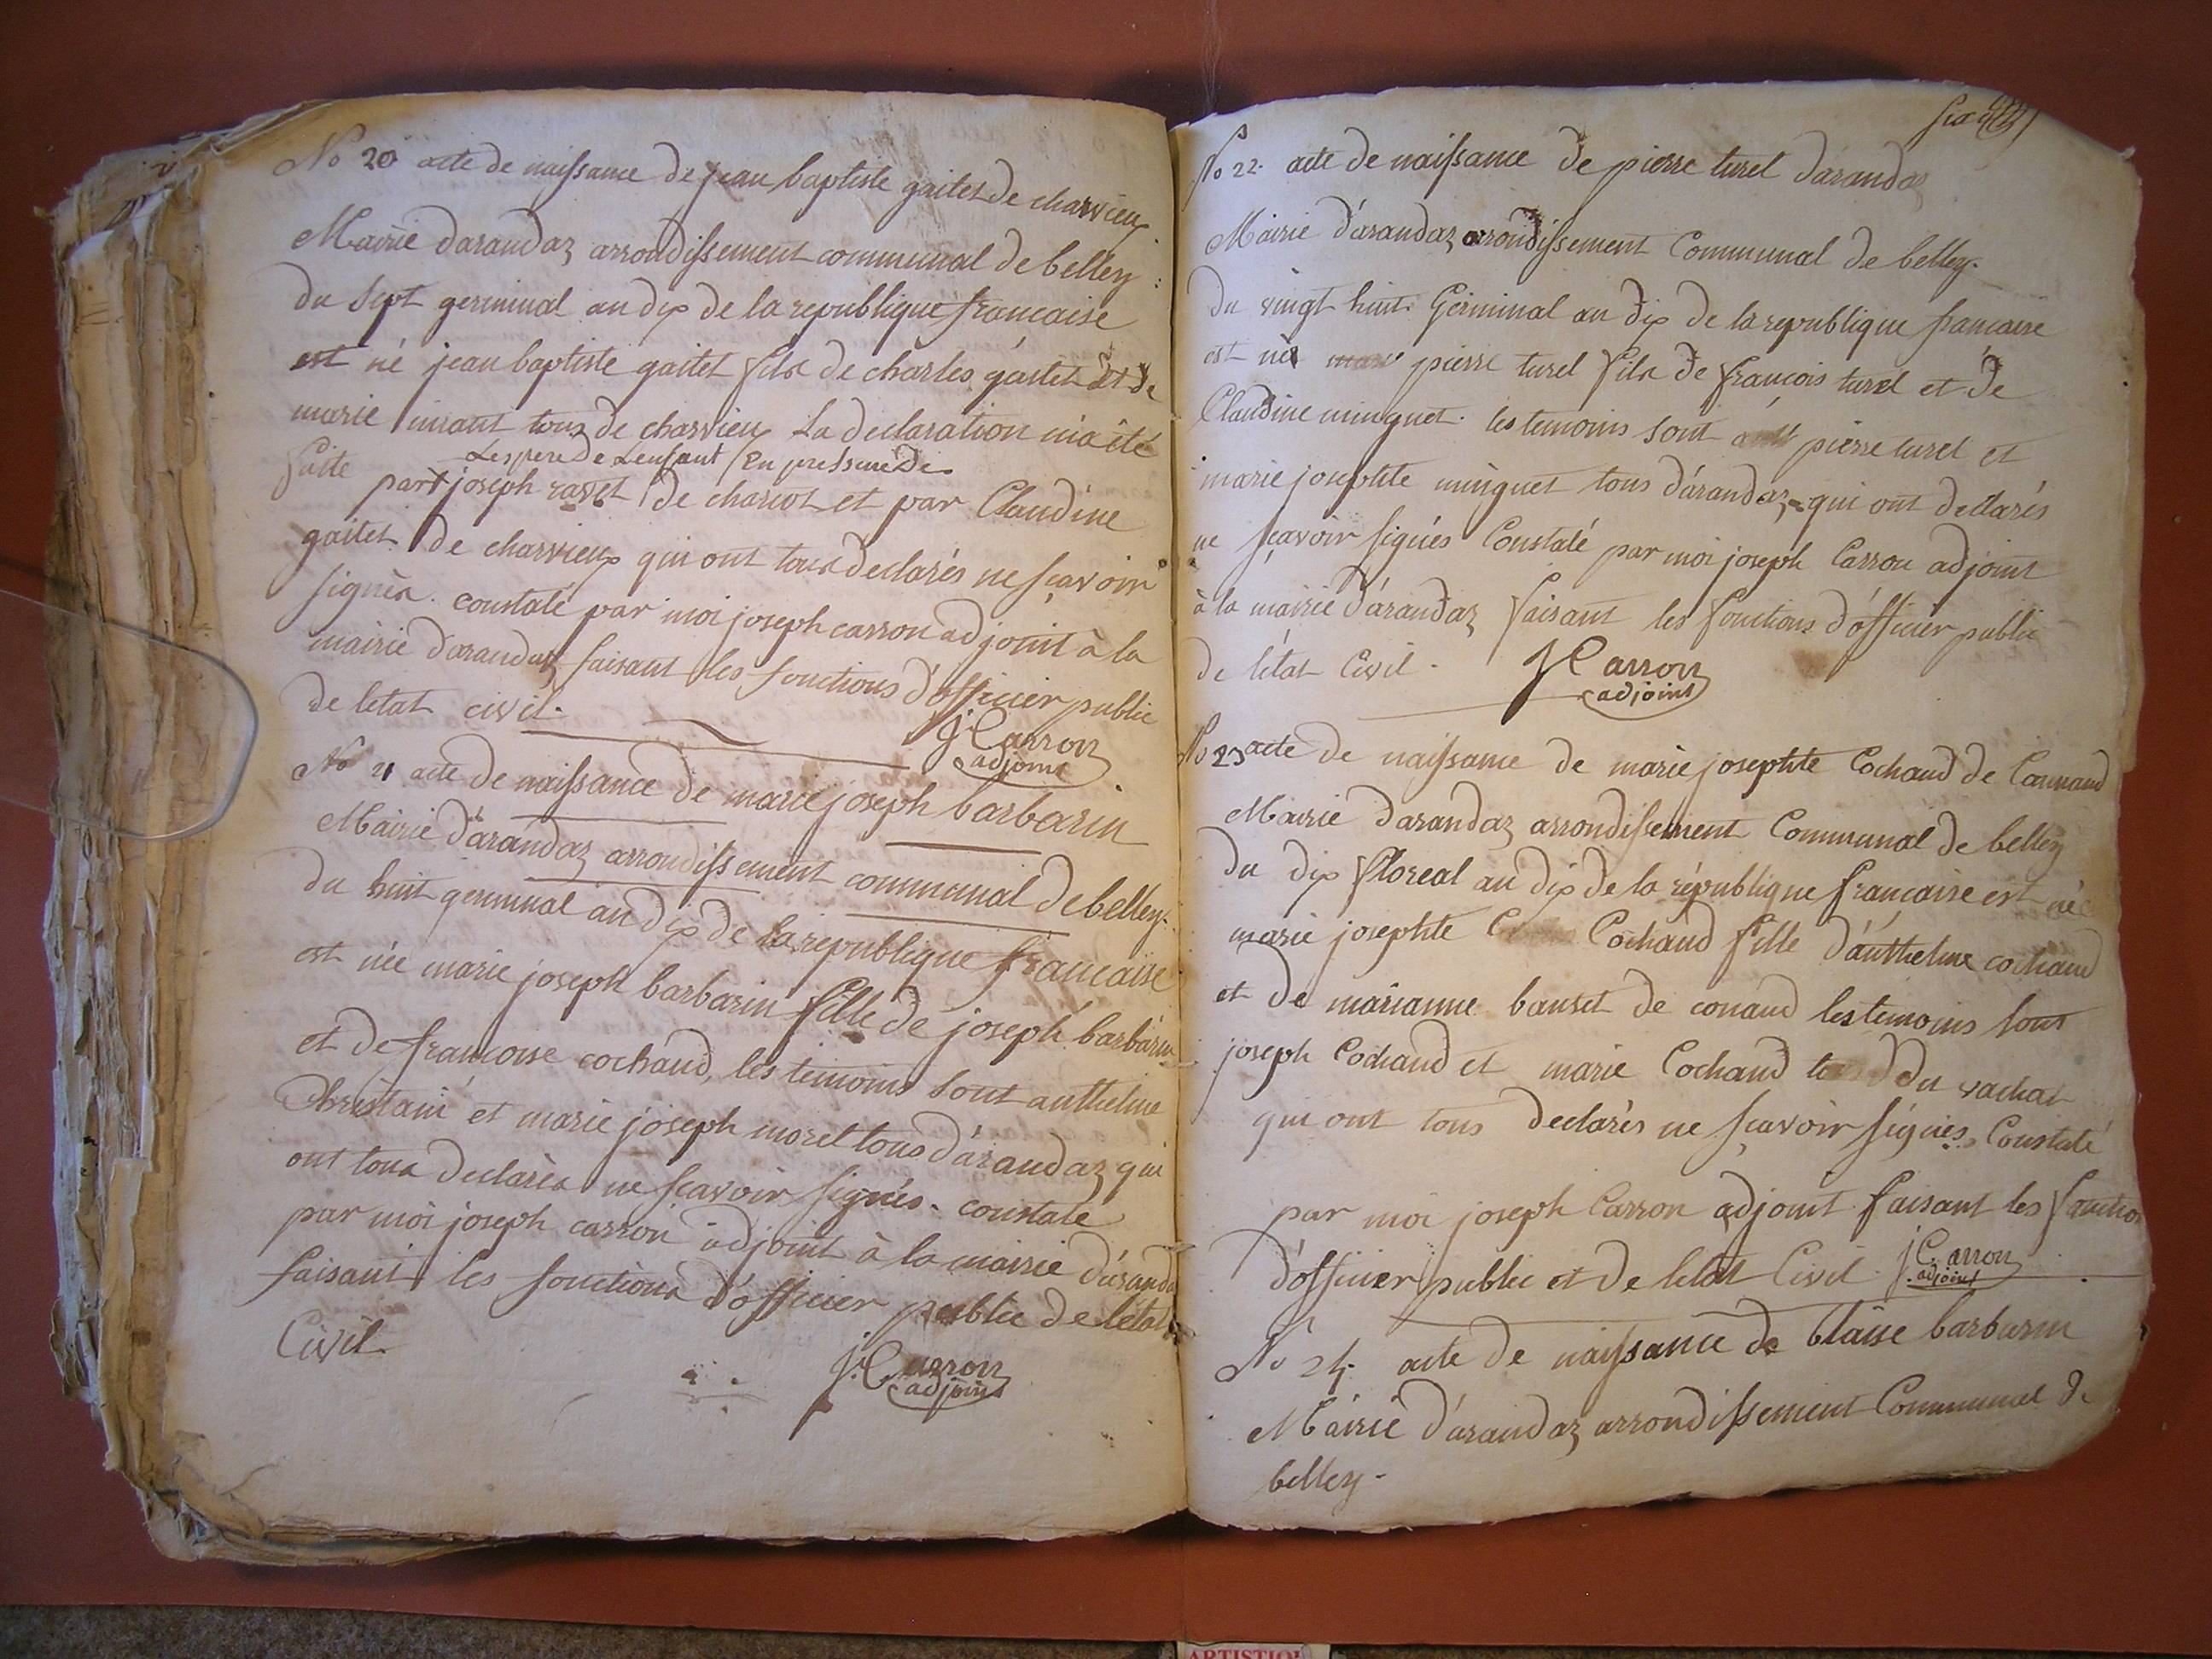 No 20 acte de naissance de jean baptiste gaitet de charvieux
Mairie darandaz arrondissement communal de belley
du sept germinal an dix de la republique francaise
est né jean baptiste gaitet fils de charles gaitet et de
marie tous de charvieux La declaration m'a été
Les pere de Lenfant En presence de
faite par joseph ravet de chariot et par Claudine
gaitet de charvieux qui ont tous declarés ne scavoir
signés. constaté par moi joseph carron adjoint à la
mairie darandaz faisant les fonctions d'officier public
de letat civil.
J Carron
adjoint
No 21 acte de naissance de marie joseph barbarin
Mairie d'arandaz arrondissement communal de belley.
du huit germinal an dix de la republique francaise
est née marie joseph barbarin fille de joseph barbarin
et de francoise cochaud, les temoins sont anthelme
et marie joseph morel tous d'arandaz qui
ont tous declarés ne scavoir signés. constate
par moi joseph carron adjoint à la mairie d'aranda
faisant les fonctions d'officier public de létat
Civil.
J. Carron
adjoint
No 22. acte de naissance de pierre turel d'arandaz
Mairie d'arandaz arrondissement Communal de belley.
du vingt huit Germinal an dix de la republique francaise
est né pierre turel fils de francois turel et de
Claudine minguet. les temoins sont pierre turel et
marie josephte minguet tous d'arandaz qui ont declarés
ne scavoir signés Constaté par moi joseph Carron adjoint
à la mairie d'arandaz faisant les fonctions d'officier public
de létat Civil.
J Carron
adjoint
No 23 acte de naissance de marie josephte Cochaud de
Mairie darandaz arrondissement Communal de belley
du dix floreal an dix de la république francaise est né
marie josephte Cochaud fille d'anthelme cochaud
et de marianne banset de conand les temoins sont
joseph Cochaud et marie Cochaud du vachat
qui ont tous declarés ne scavoir signés. Constaté
par moi joseph Carron adjoint faisant les fonction
d'officier public et de létat Civil. J. Carron
adjoint
No 24. acte de naissance de blaise barbarin
Mairie d'arandaz arrondissement Communal de
belley.
ARTISTIQU